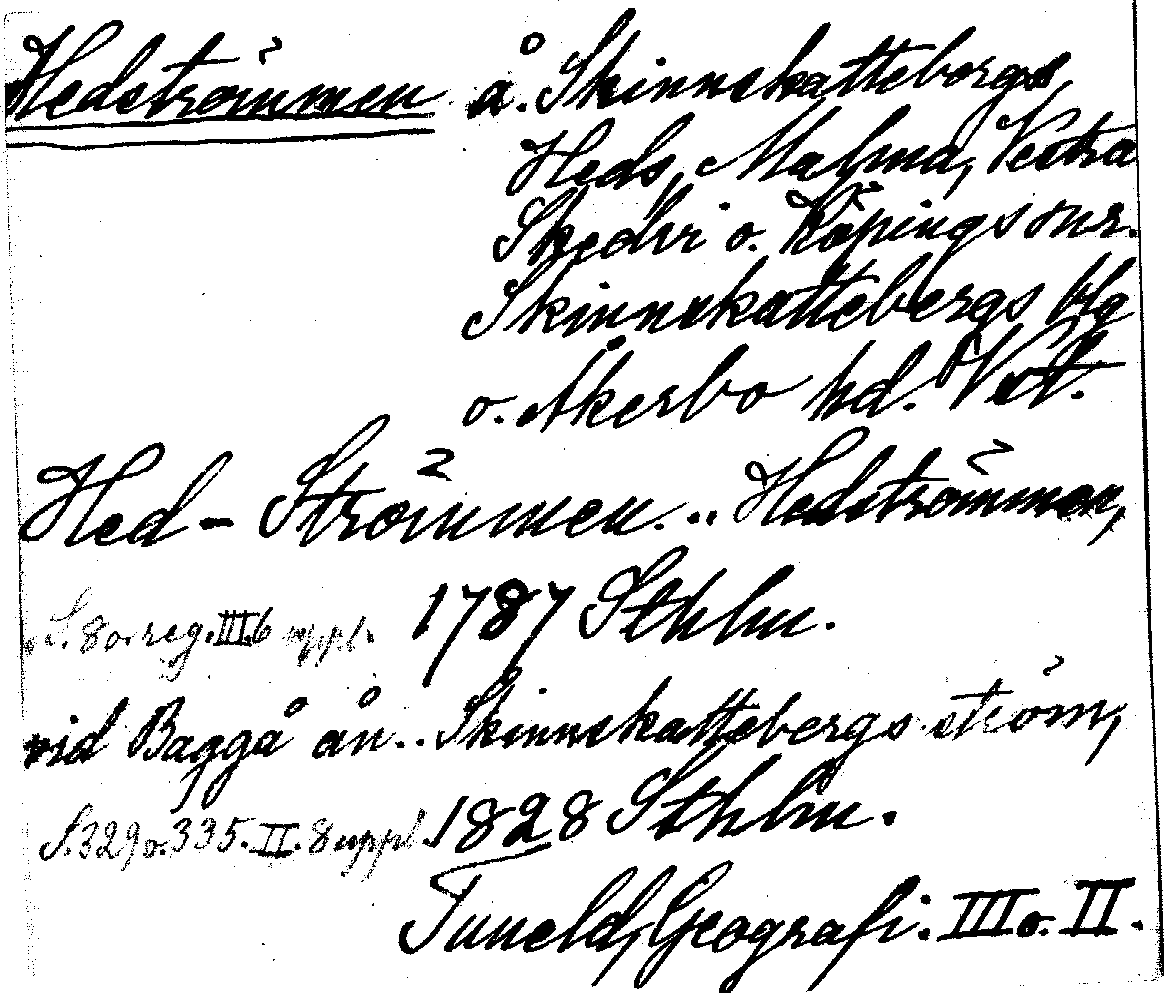 Hedströmmen å. Skinnskattebergs,
Heds, Malma, Vestra
Skedvi o. Köpings snr.
Skinnskattebergs blg
o. Åkerbo hd. Vstl.
Hed-Strömmen... Hedströmmen,
S. 8 o. reg. III. 6 uppl. 1787 Sthlm.
vid Baggå ån.. Skinnskattebergs ström,
S. 329 o. 335. II. 8 uppl. 1828 Sthlm.
Tuneld, Geografi. III o. II.